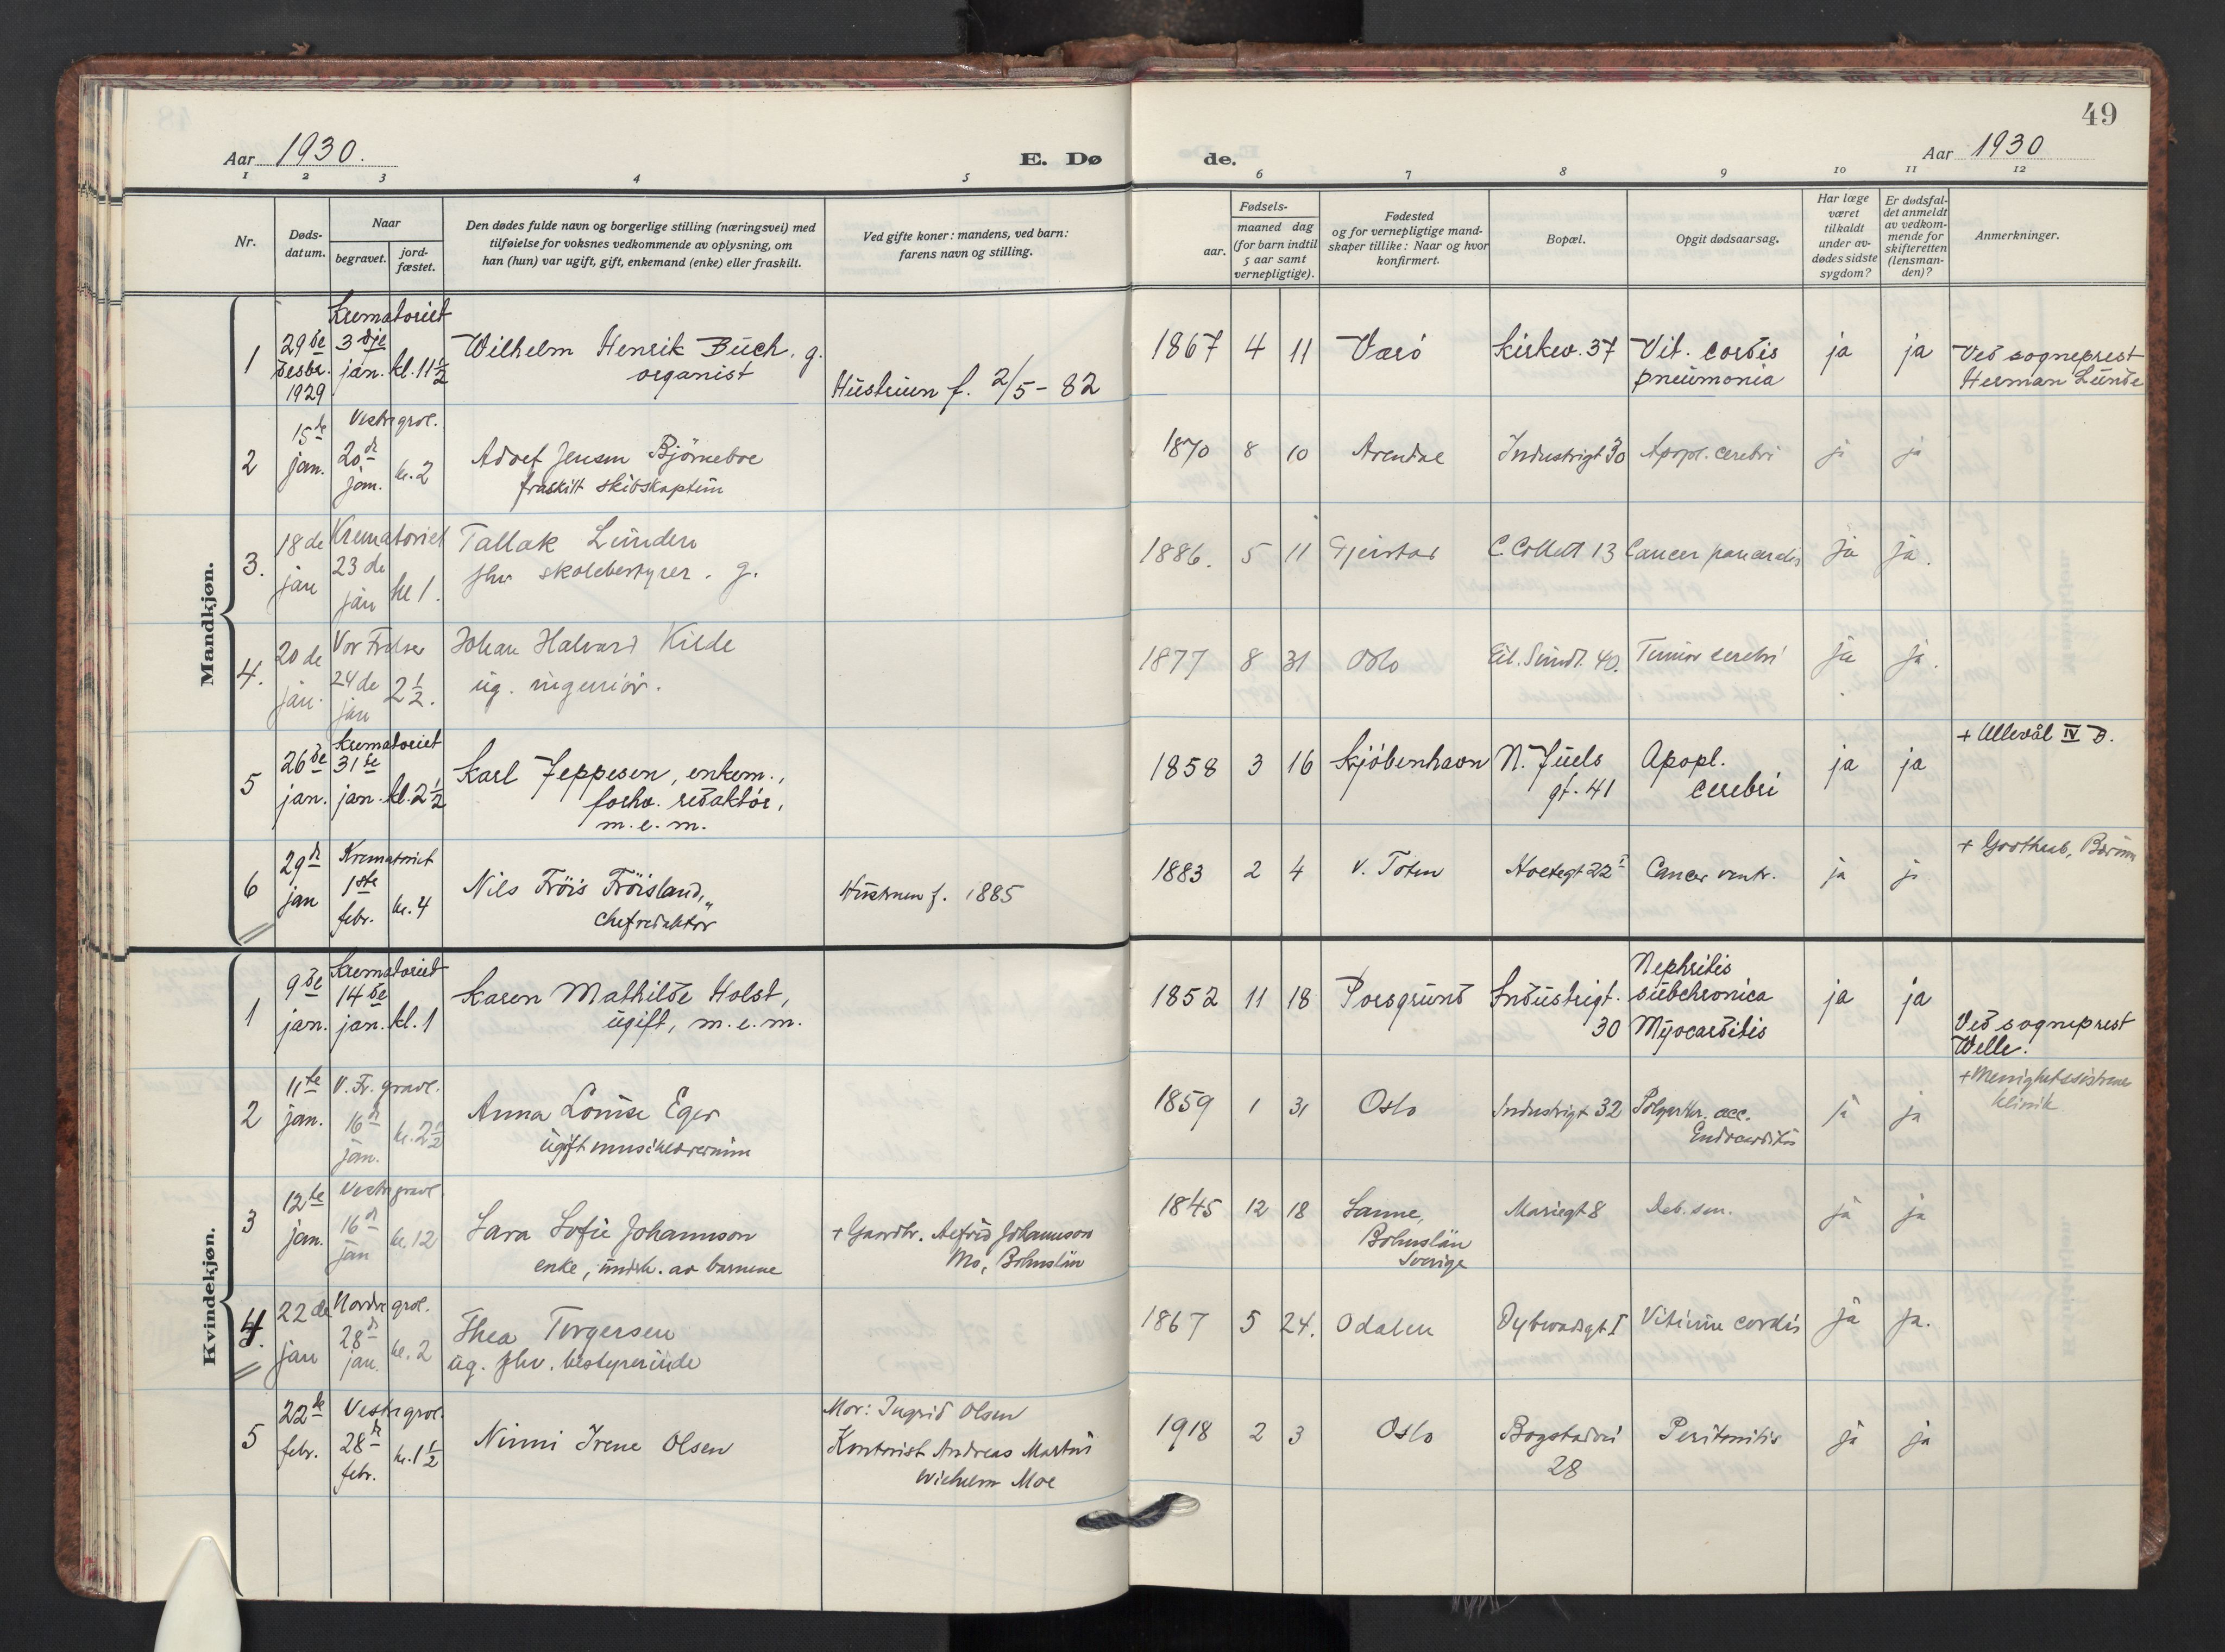 49
Aar 1930.
E. Dø
de.
Aar 1930
1 2 3 4 5 6 7 8 9 10 11 12
Nr.
Døds-
datum.
Naar
begravet.
jord-
fæstet.
Den dødes fulde navn og borgerlige stilling (næringsvei) med
tilføielse for voksnes vedkommende av oplysning, om
han (hun) var ugift, gift, enkemand (enke) eller fraskilt.
Ved gifte koner: mandens, ved barn:
farens navn og stilling.
Fødsels-
aar.
maaned dag
(for barn indtil
5 aar samt
vernepligtige).
Fødested
og for vernepligtige mand-
skaper tillike: Naar og hvor
konfirmert.
Bopæl.
Opgit dødsaarsag.
Har læge
været
tilkaldt
under av-
dødes sidste
sygdom?
Er dødsfal-
det anmeldt
av vedkom-
mende for
skifteretten
(lensman-
den)?
Anmerkninger.
Mandkjøn.
1
29de
desbr.
1929
Krematoriet
3dje
jan. kl. 11½
Wilhelm Henrik Buch. g.
organist
Hustruen f. 2/5 - 82
1867 4 11
Kirkev. 37
Vit. cordis
pneumonia
ja ja
Ved sogneprest
Herman Lunde
2
15de
jan.
Vestre grvl.
20de
jan. kl. 2
Adolf Jensen Björneboe
fraskilt skibskaptein
1870 8 10
Arendal
Industrigt 30
Apopl. cerebri
ja ja
3.
18de
jan
Krematoriet
23de
jan kl 1.
Tallak Lunden
fhv skolebestyrer. g.
1886. 5 11
Gjerstad
C. Collett 13
Cancer pancreatis
ja ja.
4.
20de
jan.
Vor Frelser
24de
jan 2½.
Johan Halvard Kilde
ug. ingeniør.
1877 8 31
Oslo
Eil. Sundt. 40.
Tumor cerebri
ja ja.
5
26de
jan.
Krematoriet
31te
jan. kl. 2½
Karl Jeppesen, enkem.,
forhv. redaktör,
m.e.m.
1858 3 16
Kjöbenhavn
N. Juels
gt. 41
Apopl.
cerebri
ja ja
+ Ullevål IV D.
6
29de
jan
Krematoriet
1ste
febr. kl. 4
Nils Fröis Fröisland,
chefredaktör
Hustruen f. 1885
1883 2 4
V. Toten
Holtegt 22
Cancer ventr.
ja ja
+ Godthaab, Bærum
Kvindekjøn.
1
9de
jan.
Krematoriet
14de
jan. kl. 1
Karen Mathilde Holst,
ugift, m.e.m.
1852 11 18
Porsgrund
Industrigt.
30
Nephritis
subchronica
Myocarditis
ja ja
Ved sogneprest
Welle.
2
11te
jan.
V. Fr. gravl.
16de
jan. kl. 2½
Anna Louise Eger
ugift musiklærerinne
1859 1 31
Oslo
Industrigt 32
Endocarditis
ja ja
+ Menighetssöstrenes
klinik
3
12te
jan.
Vestre gravl.
16de
jan kl. 12
Lara Sofie Johannson
enke, undsh. av barnene
+ Gaardbr. Alfrid Johannson
Mo, Bohuslän
1845 12 18
Sanne,
Bohuslän
Sverige
Mariegt 8
Deb. sen.
ja ja
4.
22de
jan
Nordre grvl.
28de
jan. kl. 2
Thea Torgersen
ug. fhv. bestyrerinde
1867 5 24.
Odalen
Dybwadsgt I
Vitium cordis
ja ja.
5
22de
febr.
Vestre grvl.
28de
febr. kl. 1½
Ninni Irene Olsen
Mor: Ingrid Olsen
Kontorist Andreas Martin
Wilhelm Moe
1918 2 3
Oslo
Bogstadvei
28
Peritonitis
ja ja